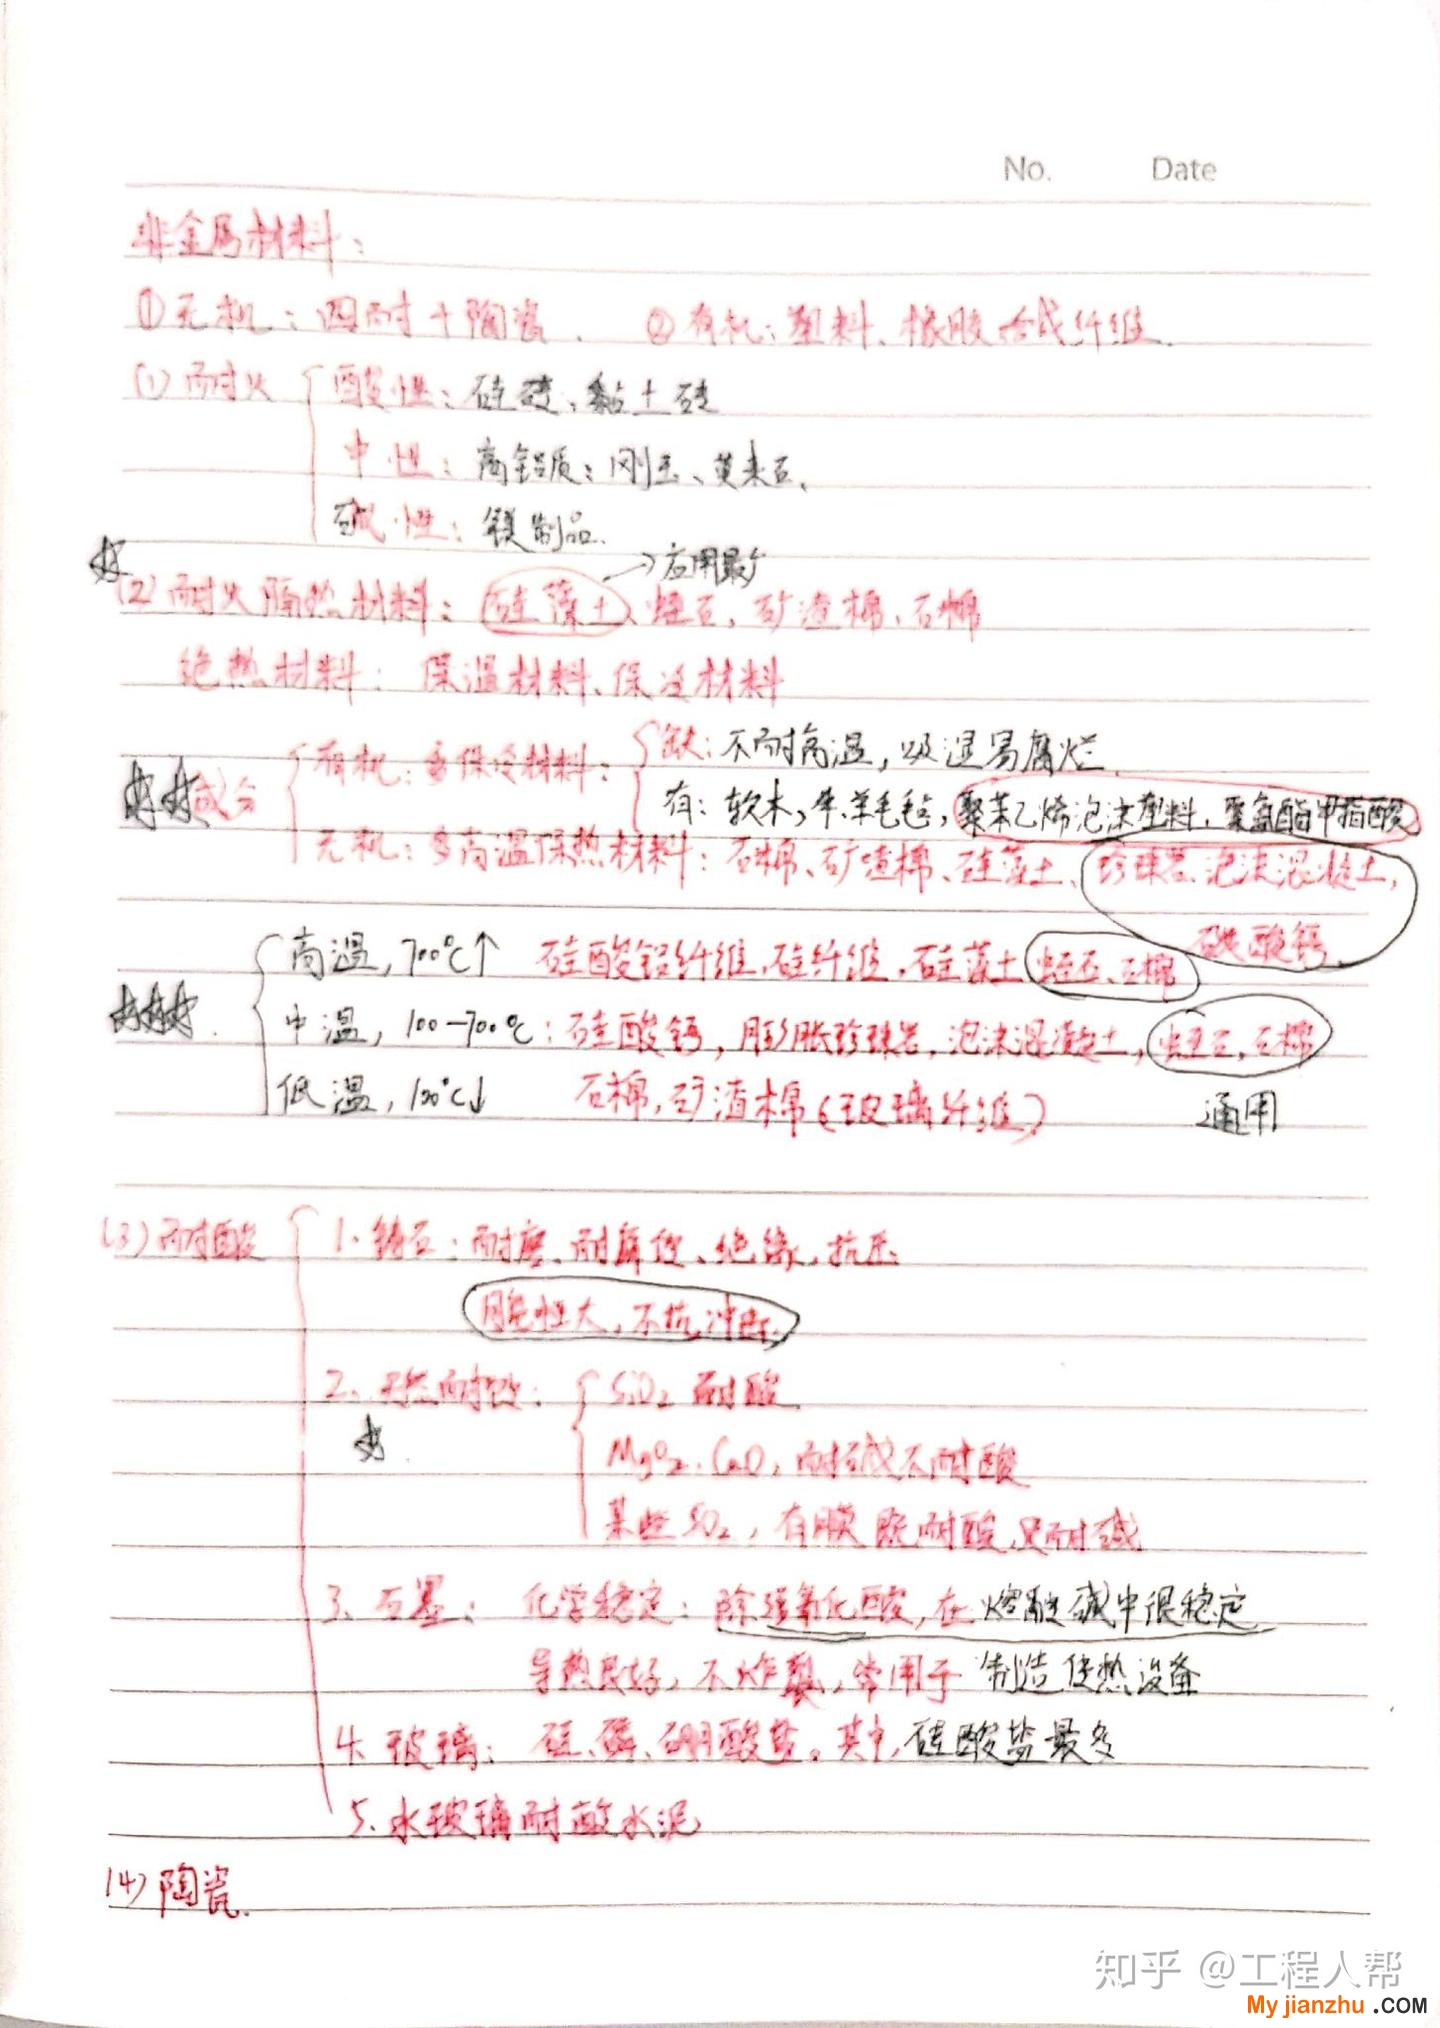 No. Date
非金属材料：
①无机：四耐+陶瓷. ②有机：塑料、橡胶合成纤维.
(1)耐火 酸性：硅砖、黏土砖
中性：高铝质：刚玉、莫来石.
碱性：镁制品.
→应用最广
(2)耐火隔热材料：硅藻土、蛭石、矿渣棉、石棉
绝热材料：保温材料、保冷材料
成分 有机：多保冷材料： 缺：不耐高温，吸湿易腐烂.
有：软木，牛.羊毛毡，聚苯乙烯泡沫塑料、聚氨酯甲指酸
无机：多高温保热材料：石棉、矿渣棉、硅藻土、珍珠岩.泡沫混凝土，
碳酸钙
高温，700℃↑ 硅酸铝纤维，硅纤维，硅藻土，蛭石、石棉
中温，100-700℃：硅酸钙，膨胀珍珠岩，泡沫混凝土，蛭石，石棉
低温，100℃↓ 石棉，矿渣棉（玻璃纤维） 通用
(3)耐酸 1.铸石：耐磨、耐腐蚀、绝缘，抗压
脆性大，不抗冲击.
2、天然耐酸： SiO2 耐酸
MgO2.CaO，耐碱不耐酸
某些SO2，有膜既耐酸，又耐碱
3、石墨： 化学稳定：除强氧化酸，在熔融碱中很稳定
导热良好，不炸裂，常用于制造传热设备
4.玻璃： 硅、磷、硼酸盐。其中，硅酸盐最多
5.水玻璃耐酸水泥
(4)陶瓷.
知乎 @工程人帮
Myjianzhu.COM